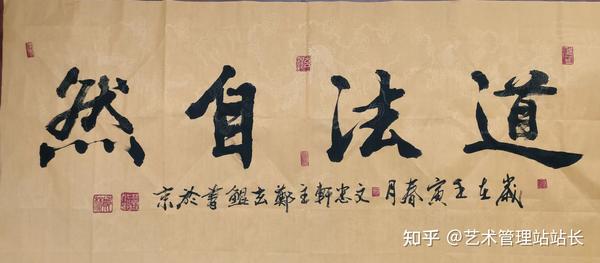 道法自然
歲在壬寅春月文忠軒主鄭玄鯤書於京
知乎 @艺术管理站站长